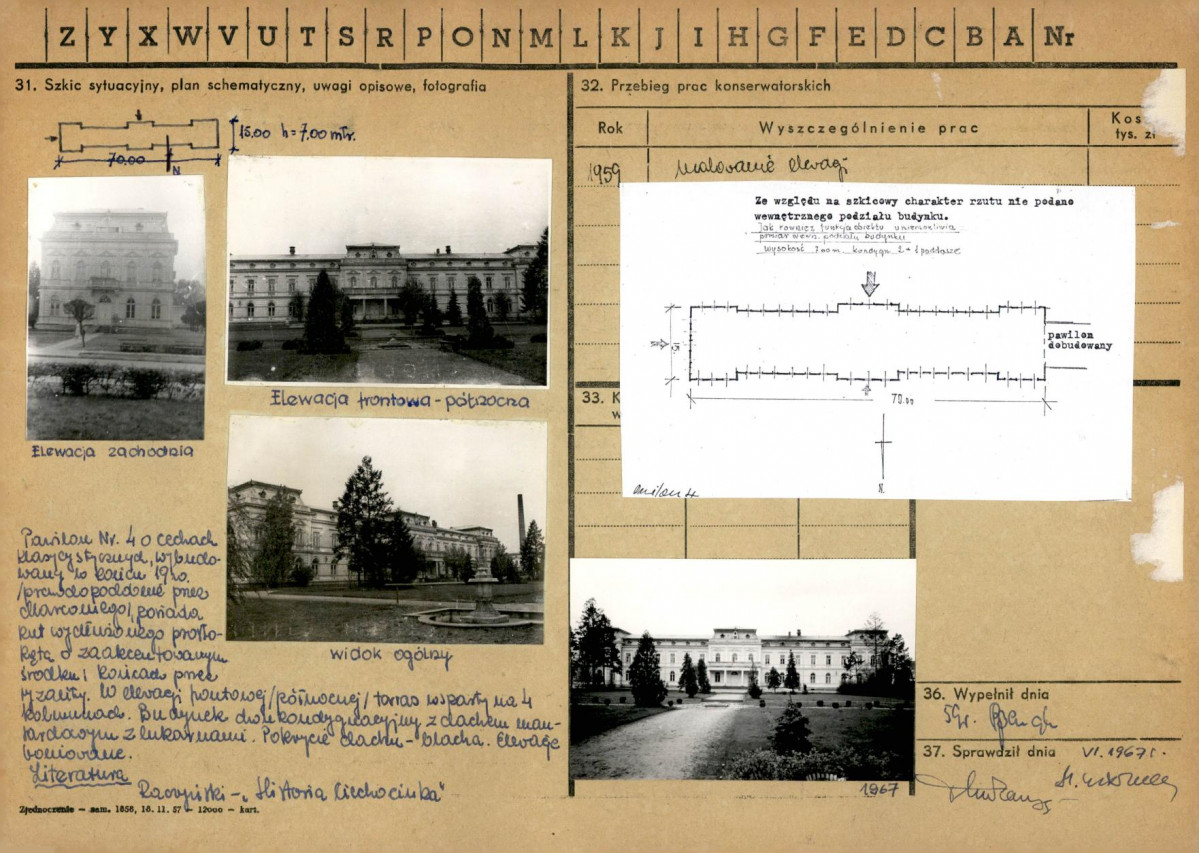 Z Y X W V U T S R P O N M L K J I H G F E D C B A Nr
31. Szkic sytuacyjny, plan schematyczny, uwagi opisowe, fotografia
15.00 h=7.00 mtr.
70.00
N
Elewacja zachodnia
Elewacja frontowa - północna
widok ogólny
Pawilon Nr. 4 o cechach
klasycystycznych, wybudo-
wany w końcu 19 w.
/prawdopodobnie przez
Marconiego/, posiada
rzut wydłużonego prosto-
kąta o zaakcentowanym
środku i końcach przez
ryzality. W elewacji frontowej /północnej/ taras wsparty na 4
kolumnach. Budynek dwukondygnacyjny z dachem man-
sardowym z lukarnami. Pokrycie dachu - blacha. Elewacje
boniowane.
Literatura
Raczyński - „Historia Ciechocinka"
Zjednoczenie — zam. 1858, 18. 11. 57 — 12000 — kart.
32. Przebieg prac konserwatorskich
Rok
Wyszczególnienie prac
Kos
tys. zł
1959 malowanie elewacji
Ze względu na szkicowy charakter rzutu nie podano
wewnętrznego podziału budynku.
jak również funkcja obiektu uniemożliwia
pomiar wewn. podziału budynku
wysokość 7.00 m. kondygn. 2 + poddasze
pawilon
dobudowany
15
70.00
N.
pawilon 4
33. K
w
1967
36. Wypełnił dnia
37. Sprawdził dnia VI.1967 r.